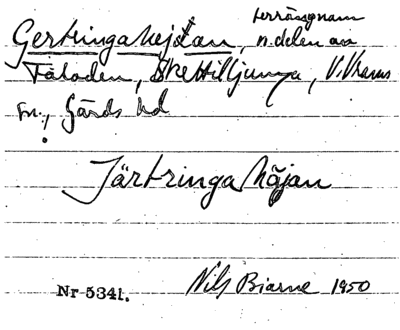 Gertringahejdan, terrängnamn
n. delen av
Fäladen, Skettilljunga, V. Vrams
sn., Gärds hd
Järtringa häjan
Nr 5341. Nils Bjarne 1950